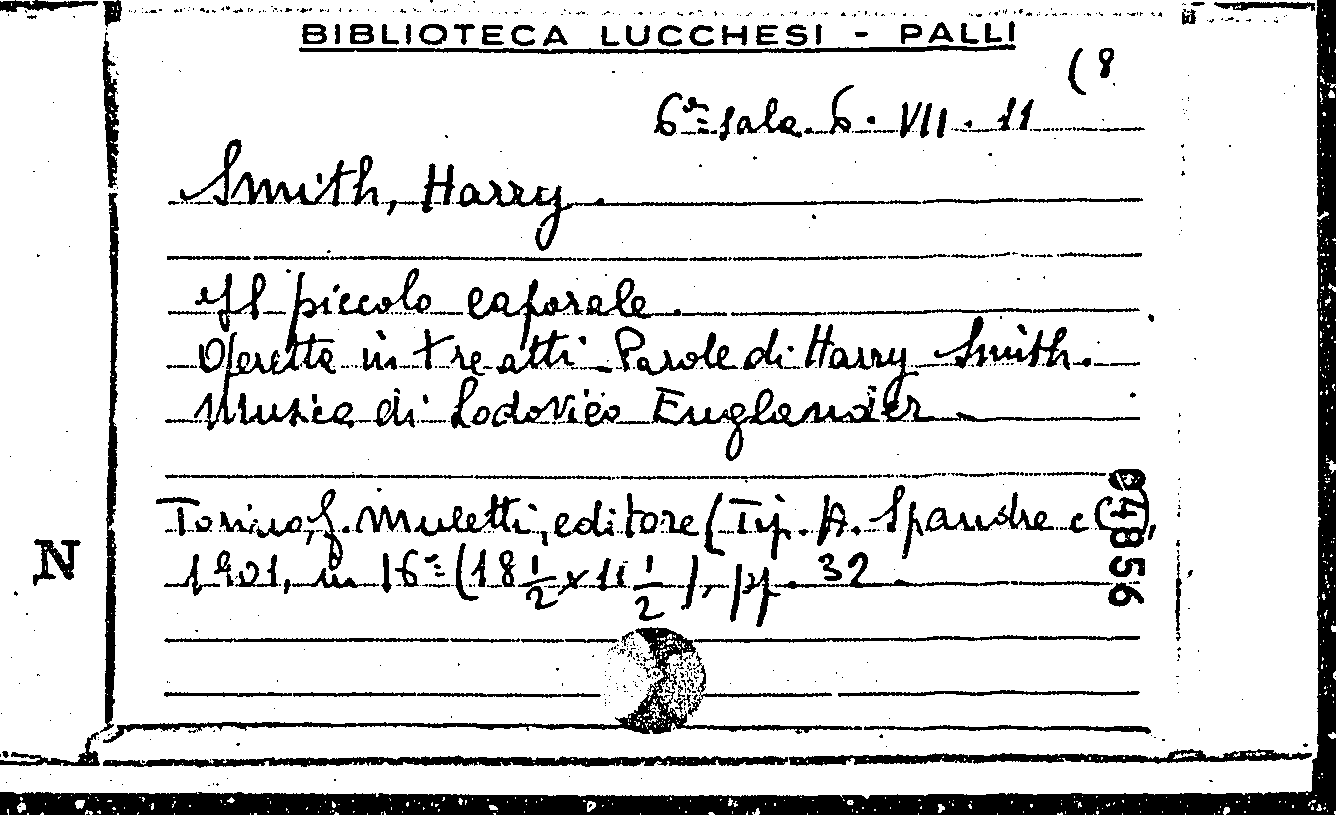 BIBLIOTECA LUCCHESI - PALLI
(8
6ª sala. 6. VII. 11
Smith, Harry.
Il piccolo caporale.
Operetta in tre atti - Parole di Harry Smith.
Musica di Lodovico Englander -
Torino, G. Muletti, editore (Tip. A. Spandre e C),
1901, in 16º (18 1/2 x 11 1/2), pp. 32.
04856
N